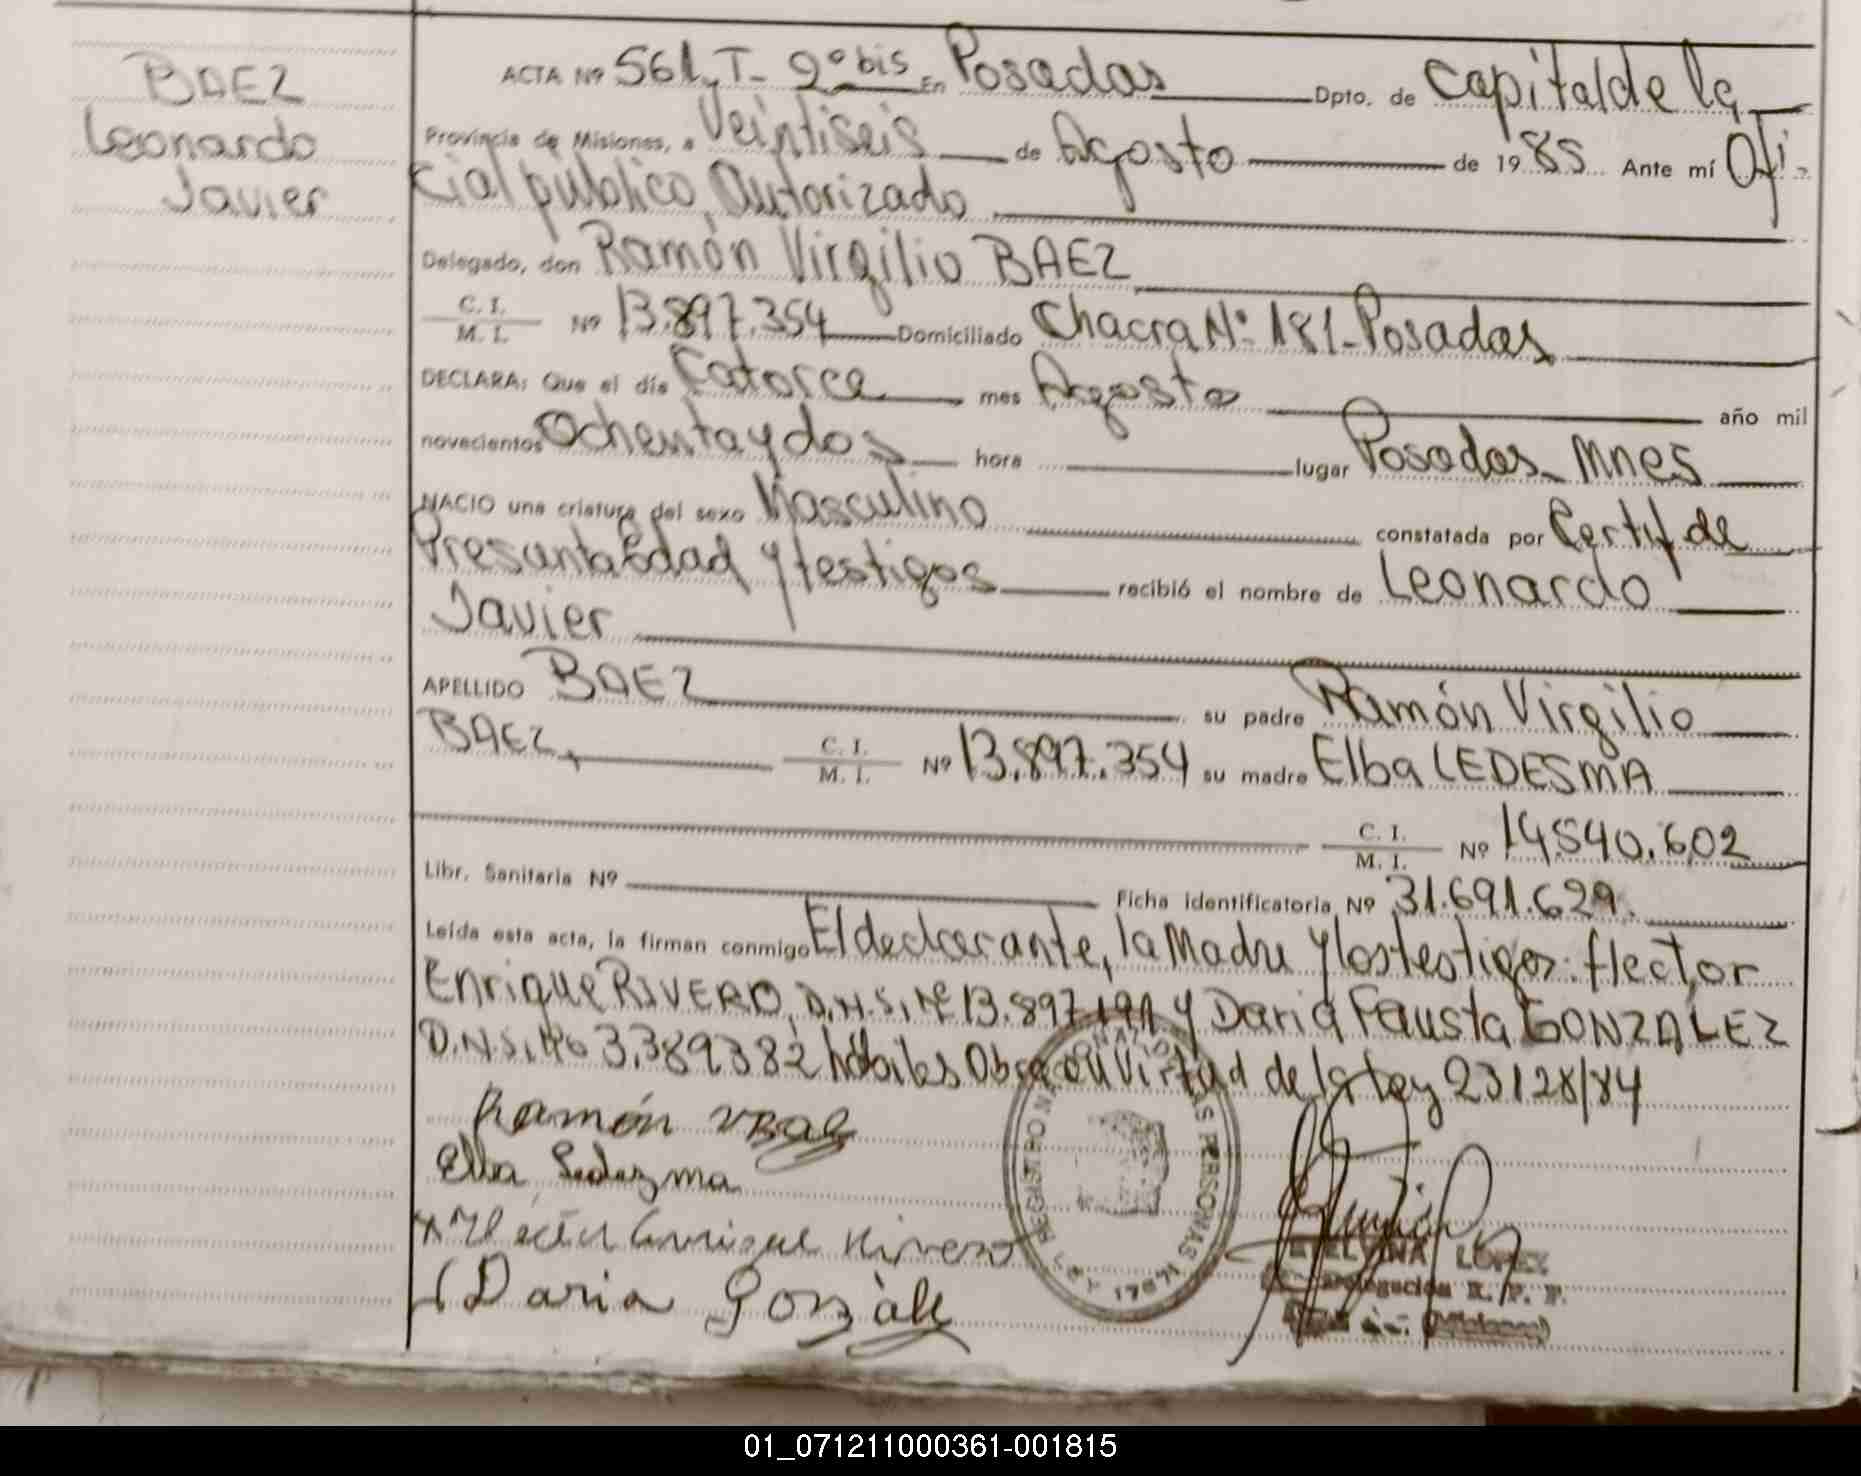 BAEZ
Leonardo
Javier
ACTA Nº 561, T- 2º bis En Posadas Dpto. de Capital de la
Provincia de Misiones, a Veintiseis de Agosto de 1985 Ante mí Ofi-
cial público, Autorizado
Delegado, don Ramón Virgilio BAEZ
C. I.
M. I. Nº 13.897.354 Domiciliado Chacra Nº 181-Posadas
DECLARA: Que el día Catorce mes Agosto año mil
novecientos Ochenta y dos hora lugar Posadas-Mnes
NACIO una criatura del sexo Masculino constatada por Certif de
Presunta Edad y testigos recibió el nombre de Leonardo
Javier
APELLIDO BAEZ su padre Ramón Virgilio
BAEZ, C. I. M. I. Nº 13.897.354 su madre Elba LEDESMA
C. I. M. I. Nº 14.540.602
Libr. Sanitaria Nº Ficha identificatoria Nº 31.691.629.
Leída esta acta, la firman conmigo El declarante, la Madre y los testigos: Hector
Enrique RIVERO, D.N.I, Nº 13.897.191 y Daria Fausta GONZALEZ
D.N.I, Nº 3.389382 hábiles Obra en Virtud de la Ley 23128/84
Ramón VBaez
Elba Ledezma
Hector Enrique Rivero
Daria Gonzàlez
REGISTRO NACIONAL DE LAS PERSONAS
LEY 17671
ETELVINA LOPEZ
Delegación R. P. P.
(Misiones)
01_071211000361-001815